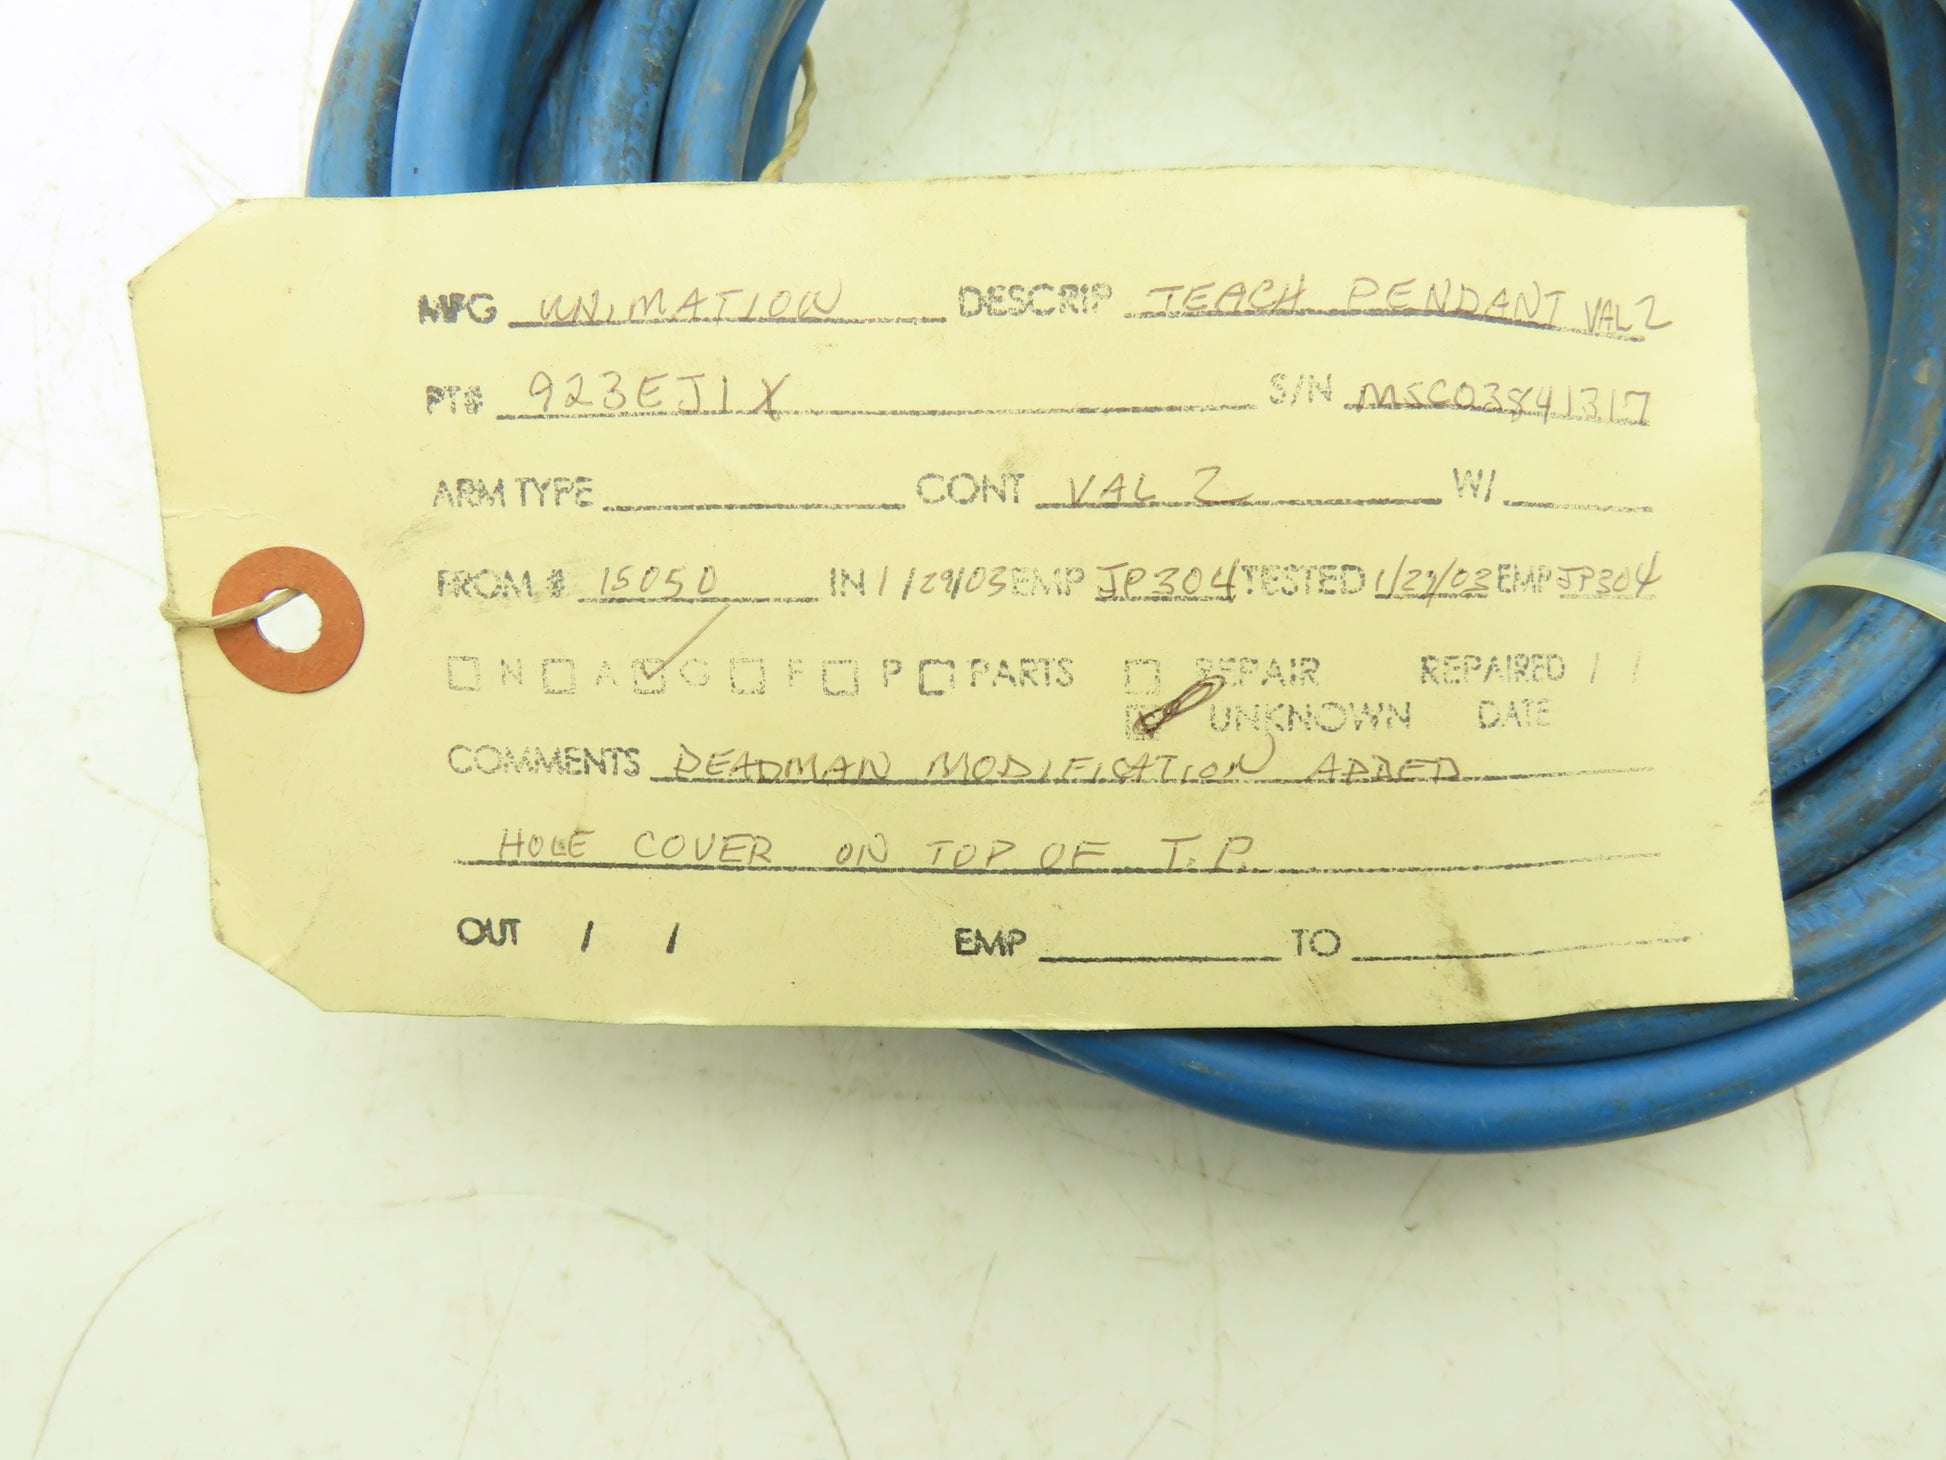 MFG UNIMATION DESCRIP TEACH PENDANT VAL 2
PT# 923EJ1X S/N MSC03841317
ARM TYPE CONT VAL 2 W/
FROM # 15050 IN 1/29/03 EMP JP304 TESTED 1/29/03 EMP JP304
N A G F P PARTS REPAIR REPAIRED / /
UNKNOWN DATE
COMMENTS DEADMAN MODIFICATION ADDED
HOLE COVER ON TOP OF T.P.
OUT / / EMP TO